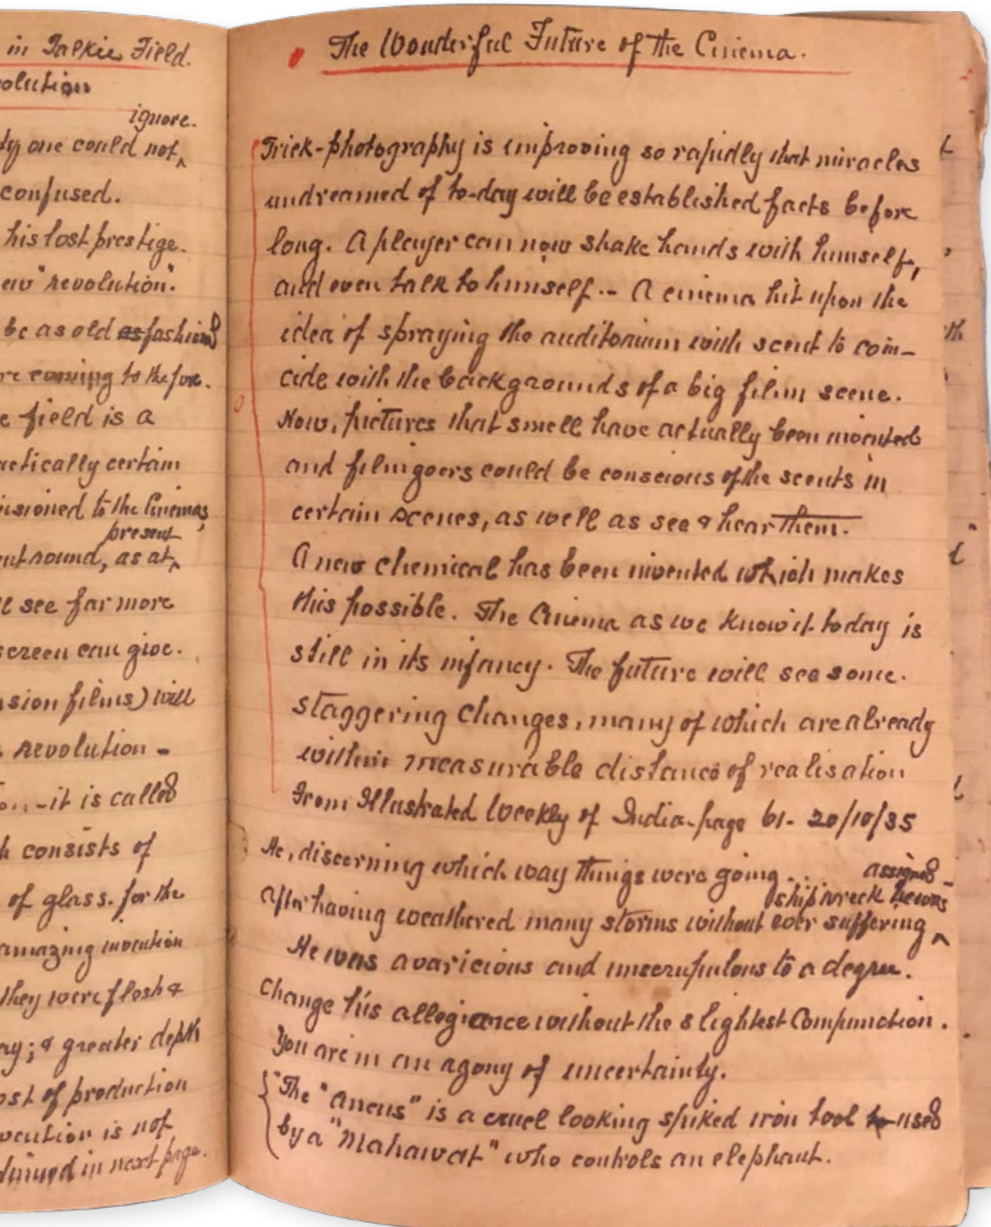 in Talkie Field.
olution
ignore.
ty one could not ^
confused.
his lost prestige.
ew "revolution".
be as old as fashioned
re coming to the fore.
e field is a
actically certain
isioned to the Cinemas,
present
ut sound, as at ^
ll see far more
screen can give.
sion films) will
revolution -
on, -it is called
h consists of
of glass. for the
amazing invention
they were flesh &
ay; & greater depth
ost of production
vention is not
in next page.
The Wonderful Future of the Cinema.
Trick-photography is improving so rapidly that miracles
undreamed of to-day will be established facts before
long. A player can now shake hands with himself,
and even talk to himself.-- A cinema hit upon the
idea of spraying the auditorium with scent to coin-
cide with the backgrounds of a big film scene.
Now, pictures that smell have actually been invented
and filmgoers could be conscious of the scents in
certain scenes, as well as see & hear them.
A new chemical has been invented which makes
this possible. The Cinema as we know it today is
still in its infancy. The future will see some.
staggering changes, many of which are already
within measurable distance of realisation
From Illustrated Weekly of India-page 61- 20/10/35
He, discerning which way things were going...
assigned-
shipwreck he was
After having weathered many storms without ever suffering ^
He was avaricious and unscrupulous to a degree.
Change his allegiance without the slightest Compunction.
You are in an agony of uncertainty.
"The "ancus" is a cruel looking spiked iron tool to used
by a "Mahawat" who controls an elephant.